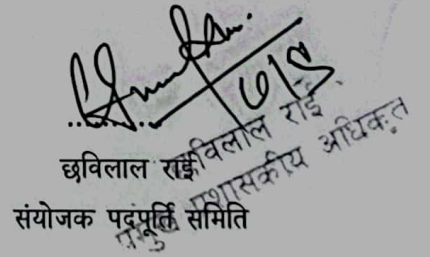 ७/५
छविलाल राई
संयोजक पदपूर्ति समिति
छविलाल राई
प्रमुख प्रशासकीय अधिकृत